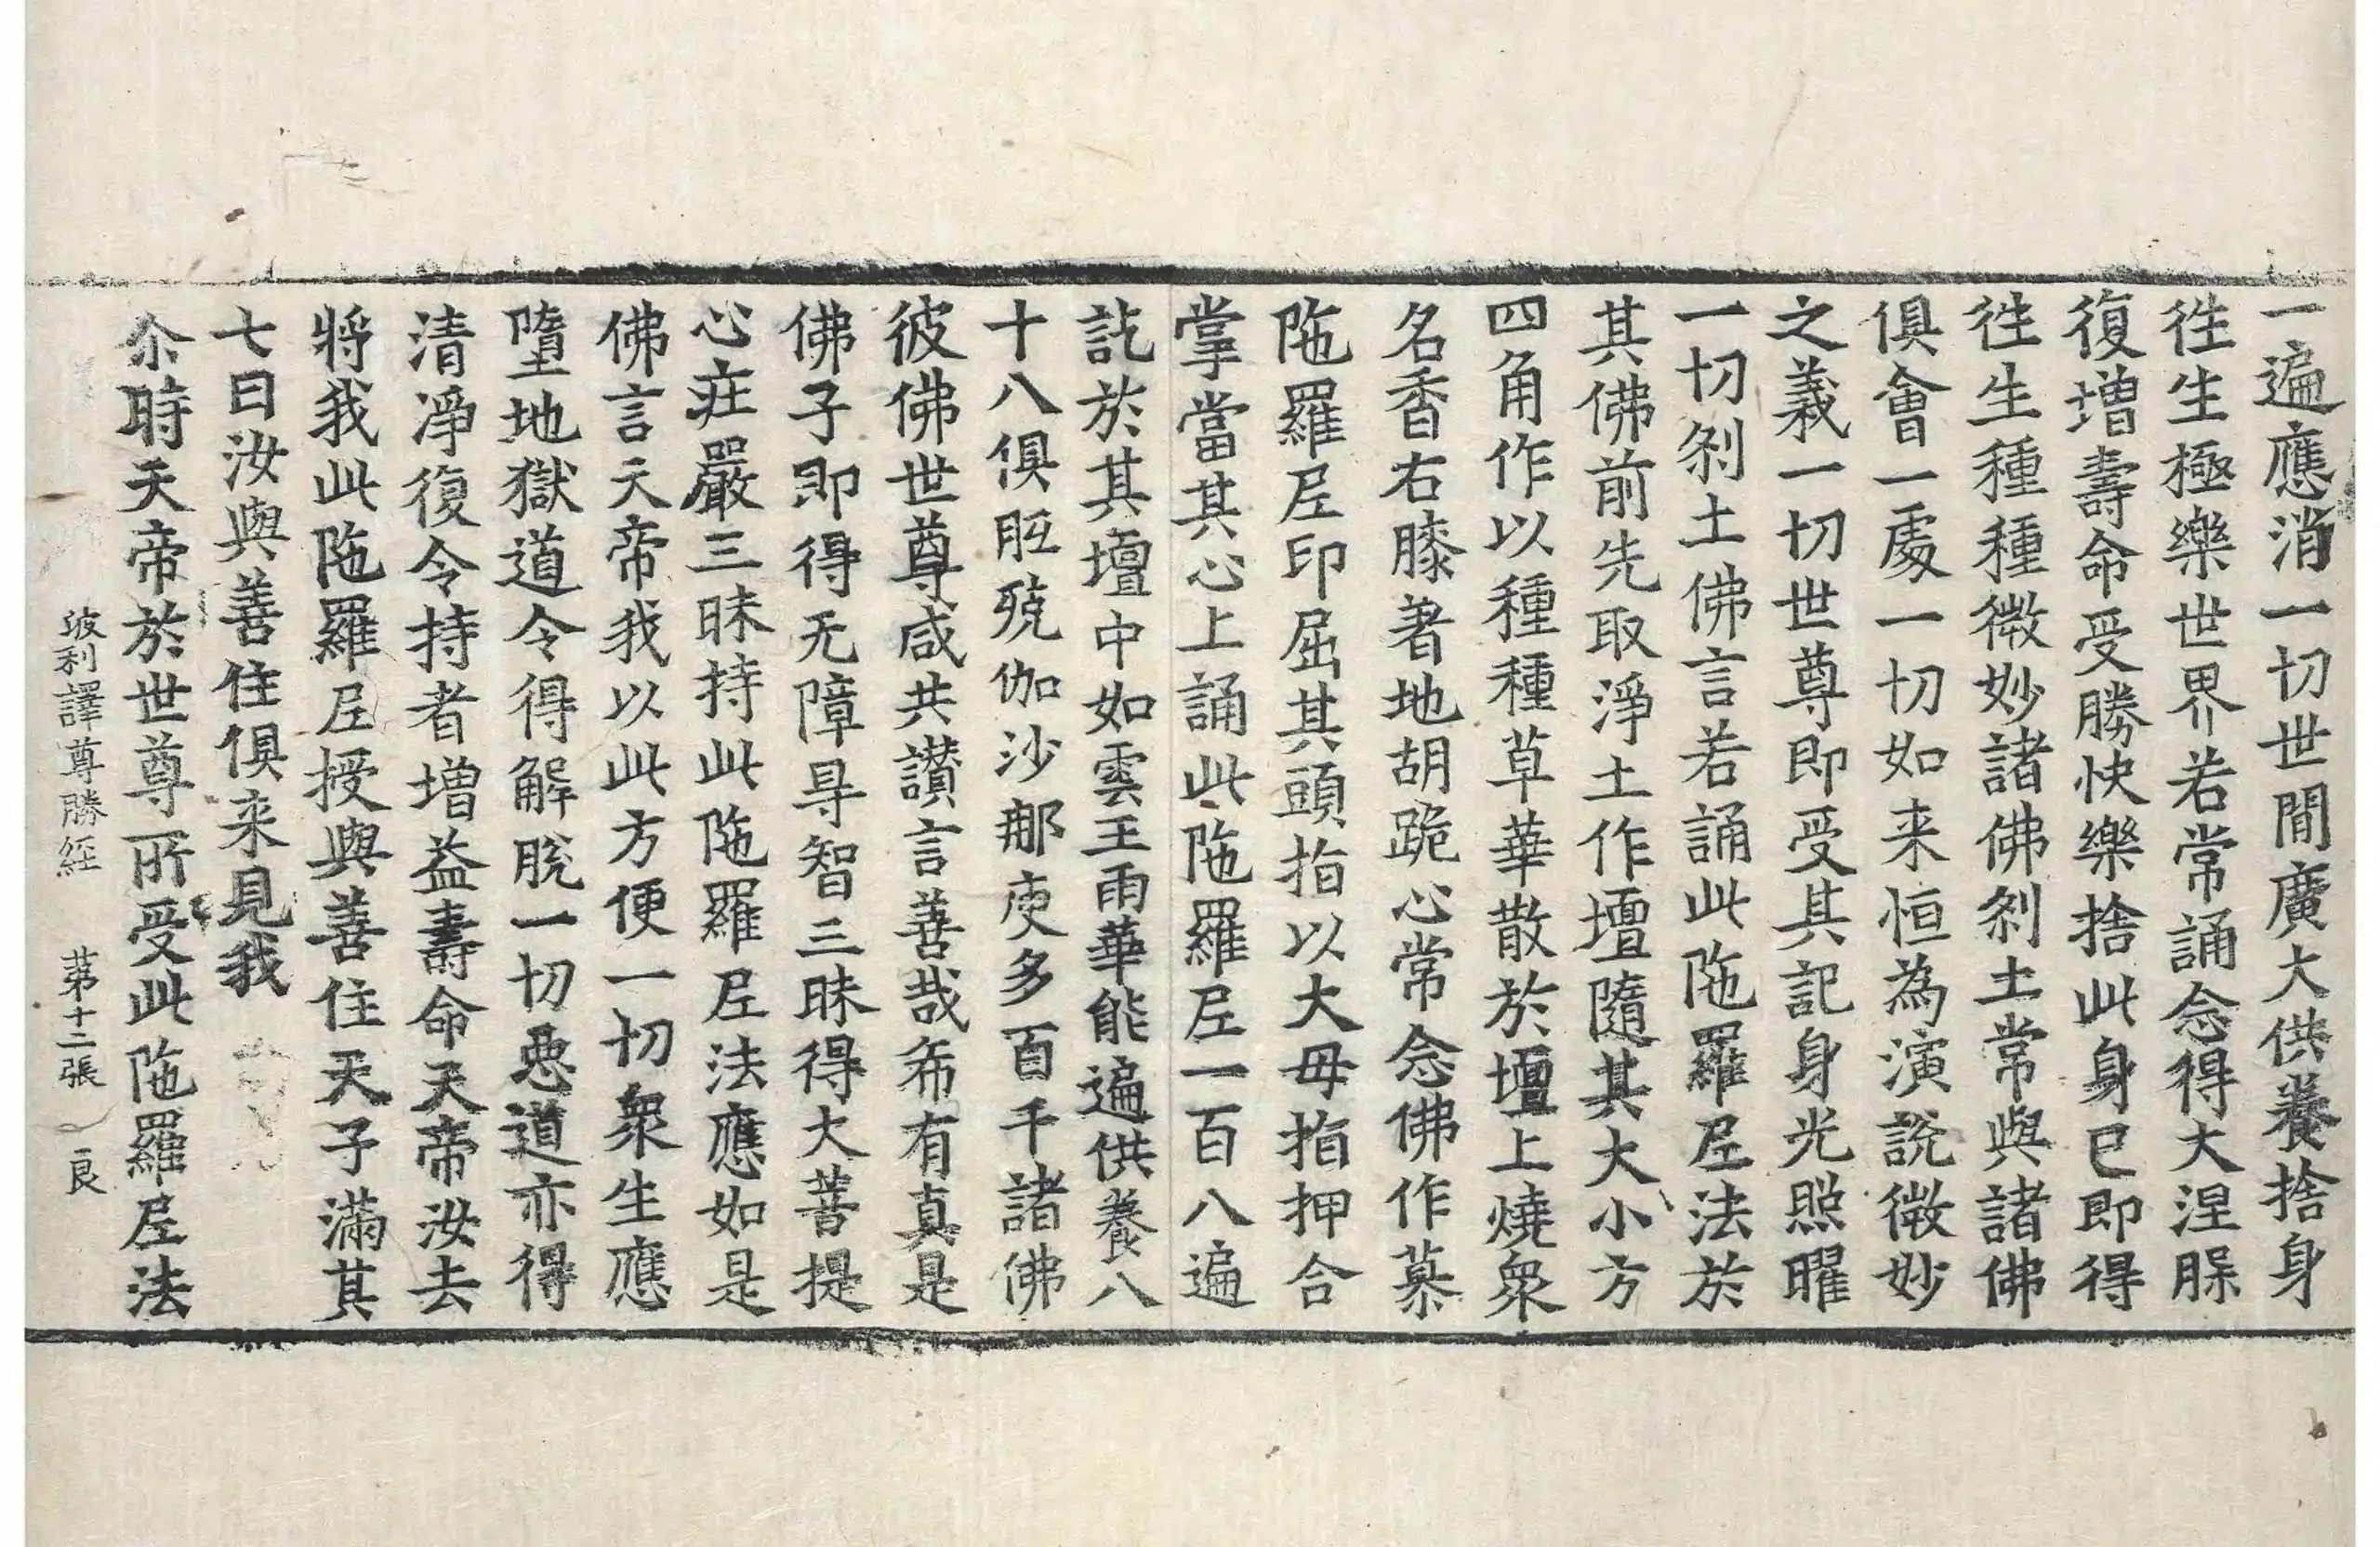 一遍應消一切世間廣大供養捨身
徃生極樂世界若常誦念得大涅𦡱
復增壽命受勝快樂捨此身已即得
徃生種種微妙諸佛剎土常與諸佛
俱會一處一切如来恒為演說微妙
之義一切世尊即受其記身光照曜
一切剎土佛言若誦此陁羅𡰱法於
其佛前先取淨土作壇隨其大小方
四角作以種種草華散於壇上燒衆
名香右膝著地胡跪心常念佛作慕
陁羅𡰱印屈其頭指以大母指押合
掌當其心上誦此陁羅𡰱一百八遍
訖於其壇中如雲王雨華能遍供養八
十八俱胝殑伽沙那庾多百千諸佛
彼佛世尊咸共讃言善哉希有真是
佛子即得无障㝵智三昧得大菩提
心莊嚴三昧持此陁羅𡰱法應如是
佛言天帝我以此方便一切衆生應
墮地獄道令得解脫一切惡道亦得
清淨復令持者增益壽命天帝汝去
將我此陁羅𡰱授與善住天子滿其
七日汝與善住俱来見我
尒時天帝於世尊所受此陁羅𡰱法
波利譯尊勝經 苐十二張 良